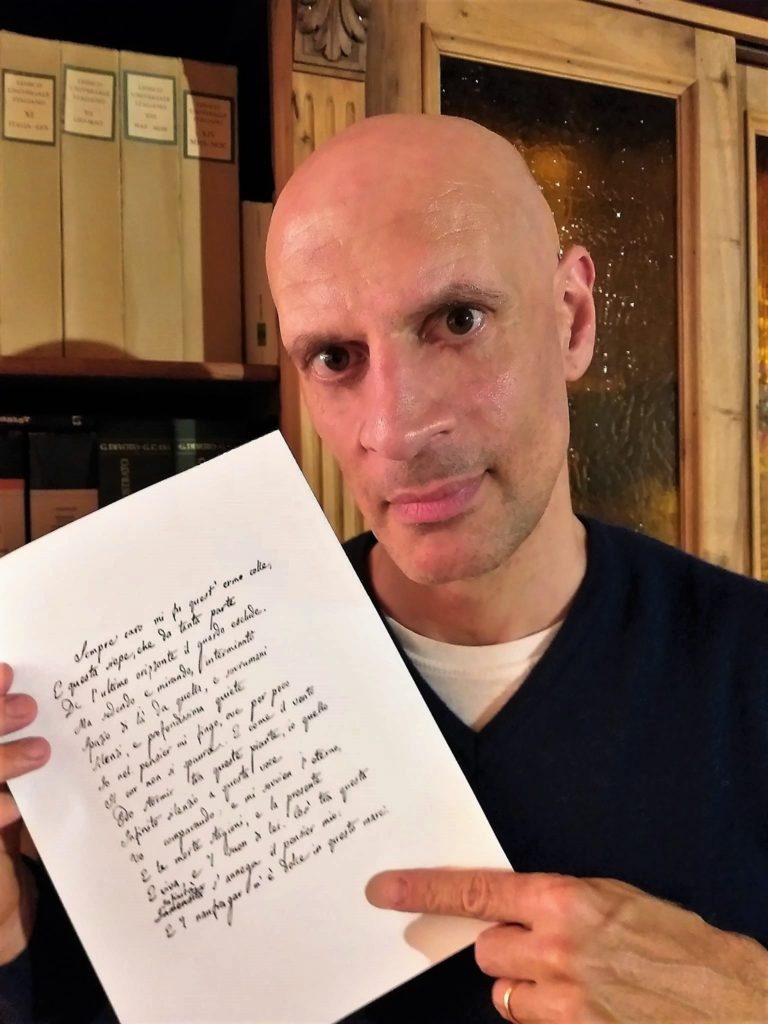 LESSICO
UNIVERSALE
ITALIANO
XI
LESSICO
UNIVERSALE
ITALIANO
LESSICO
UNIVERSALE
ITALIANO
XIII
LESSICO
UNIVERSALE
ITALIANO
XIV
G. DEVOTO - G.C.
G. DEVOTO
Sempre caro mi fu quest' ermo colle,
E questa siepe, che da tanta parte
De l'ultimo orizzonte il guardo esclude.
Ma sedendo e mirando, interminato
Spazio di là da quella, e sovrumani
Silenzi, e profondissima quiete
Io nel pensier mi fingo, ove per poco
Il cor non si spaura. E come il vento
Odo stormir tra queste piante, io quello
Infinito silenzio a questa voce
Vo comparando: e mi sovvien l'eterno,
E le morte stagioni, e la presente
E viva, e 'l suon di lei. Così tra questa
Immensità s'annega il pensier mio:
E 'l naufragar m'è dolce in questo mare.